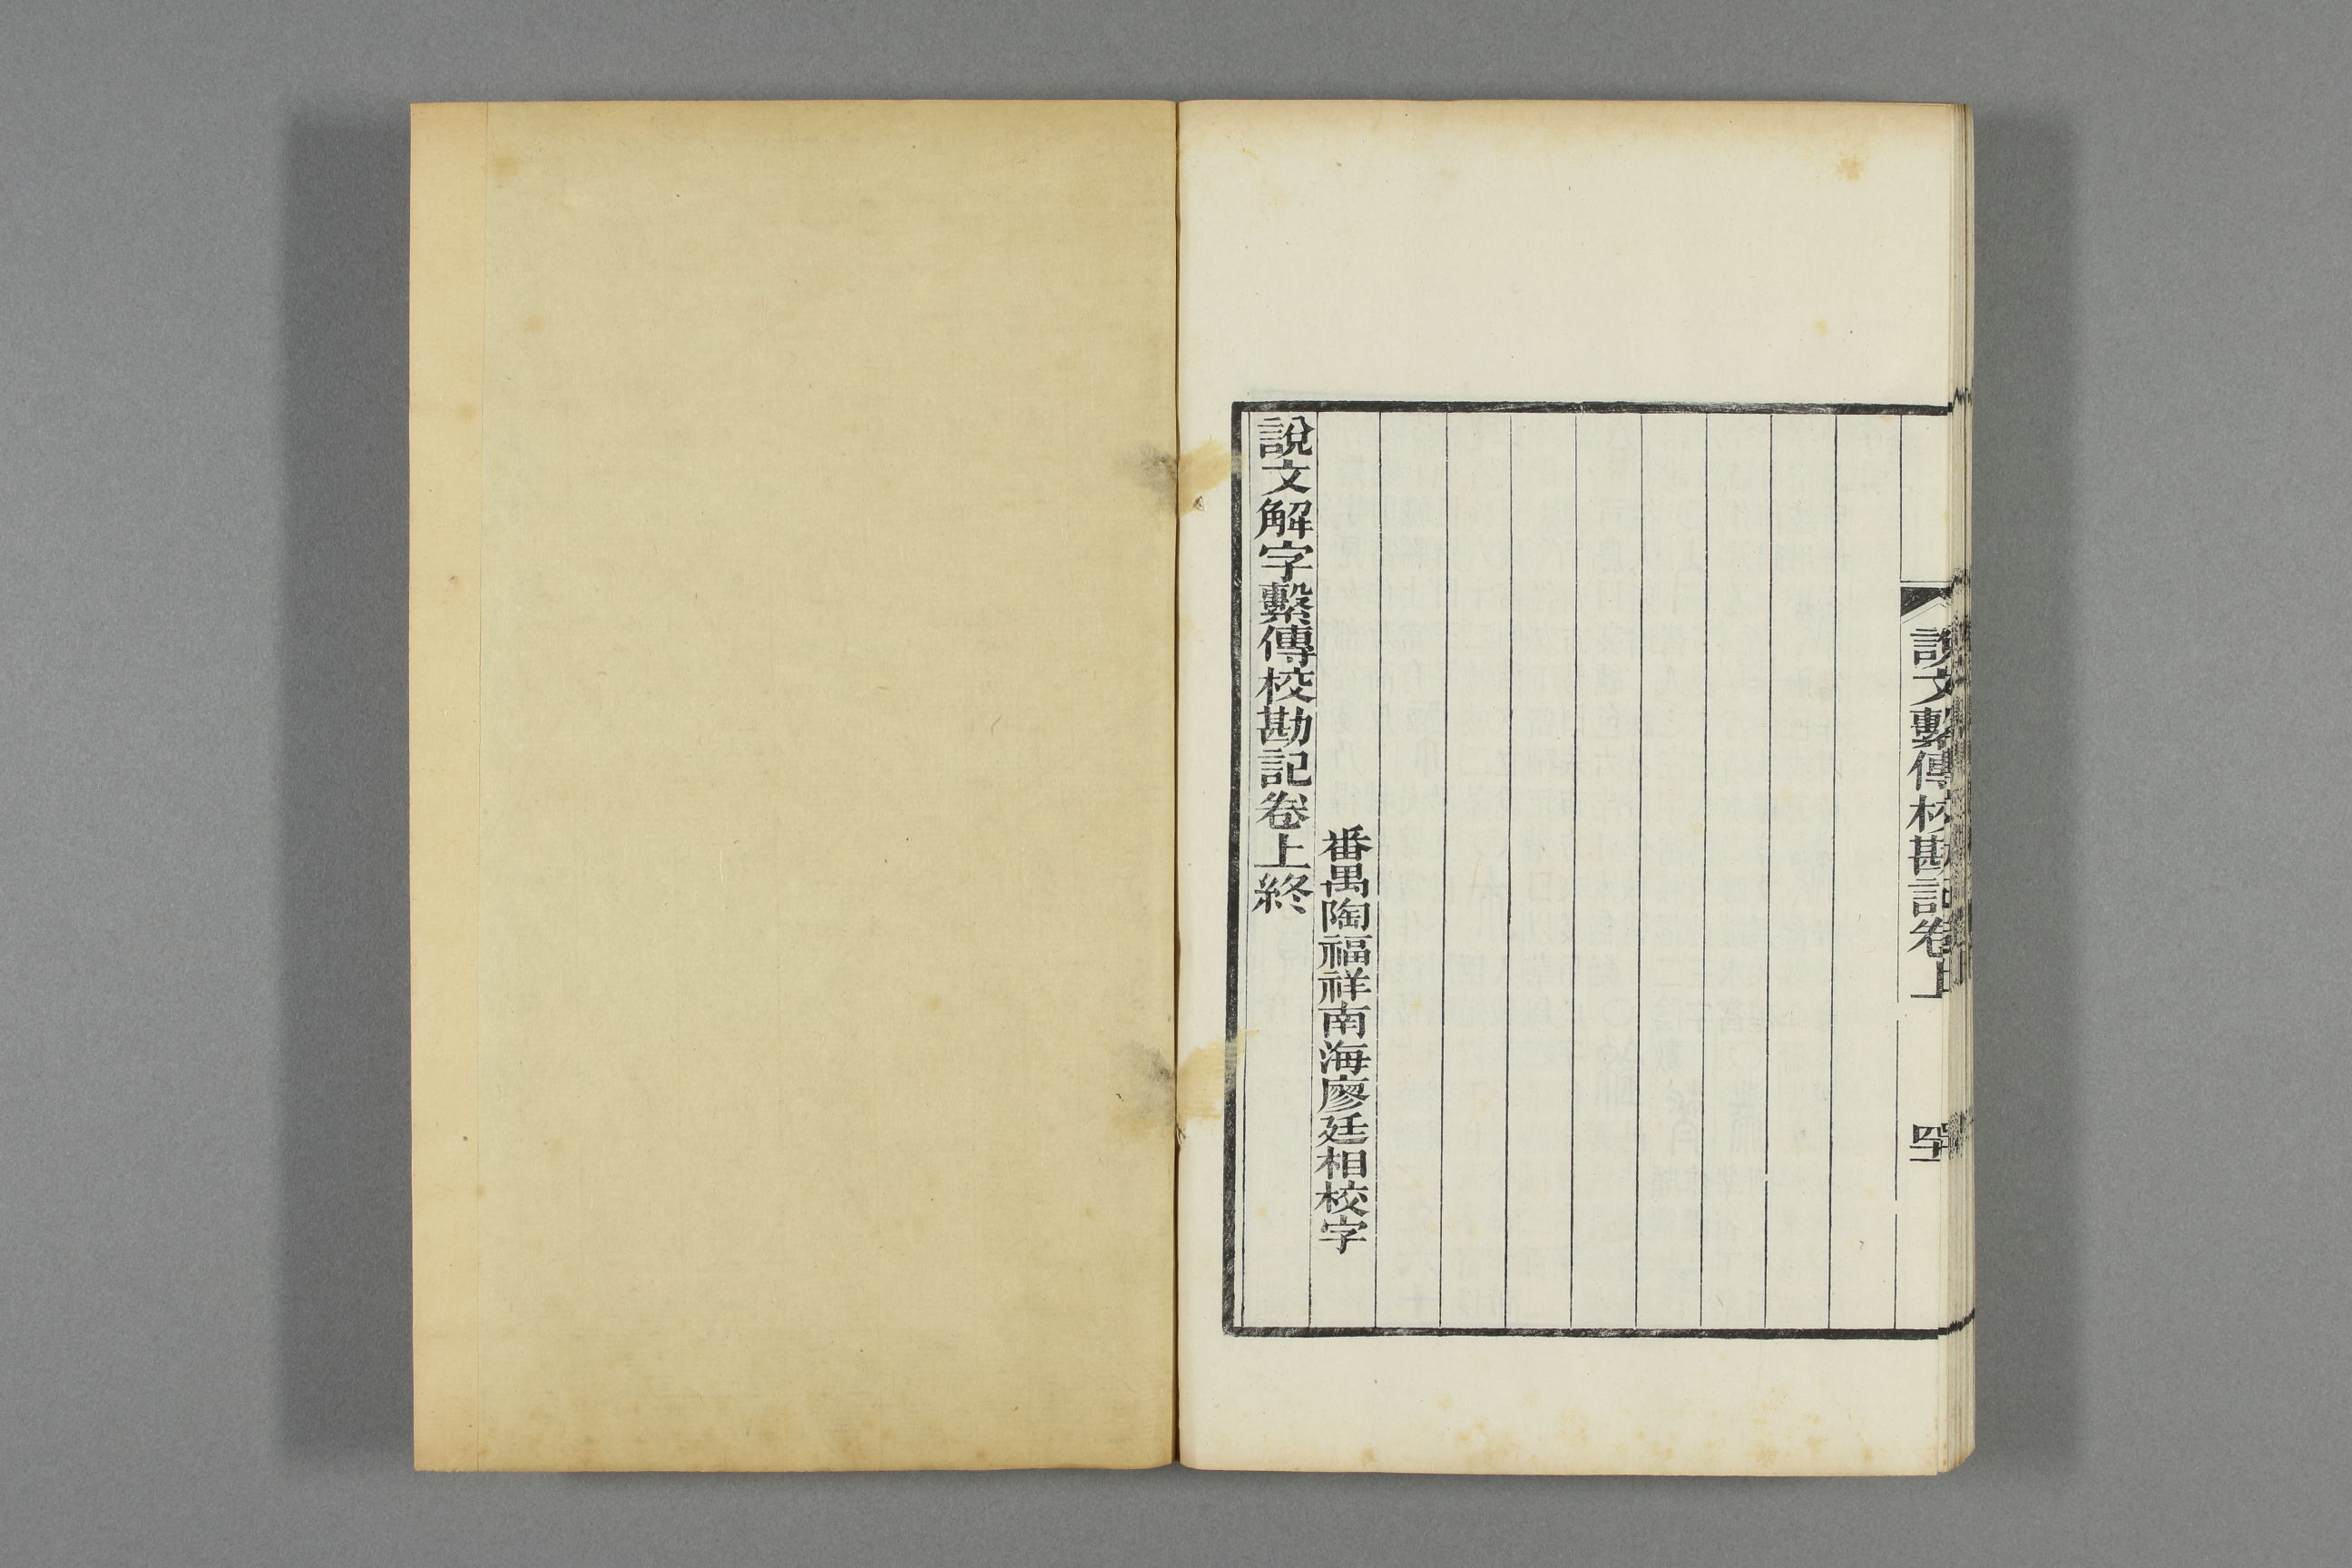 說文繫傳校勘記卷上
番禺陶福祥南海廖廷相校字
說文解字繫傳校勘記卷上終